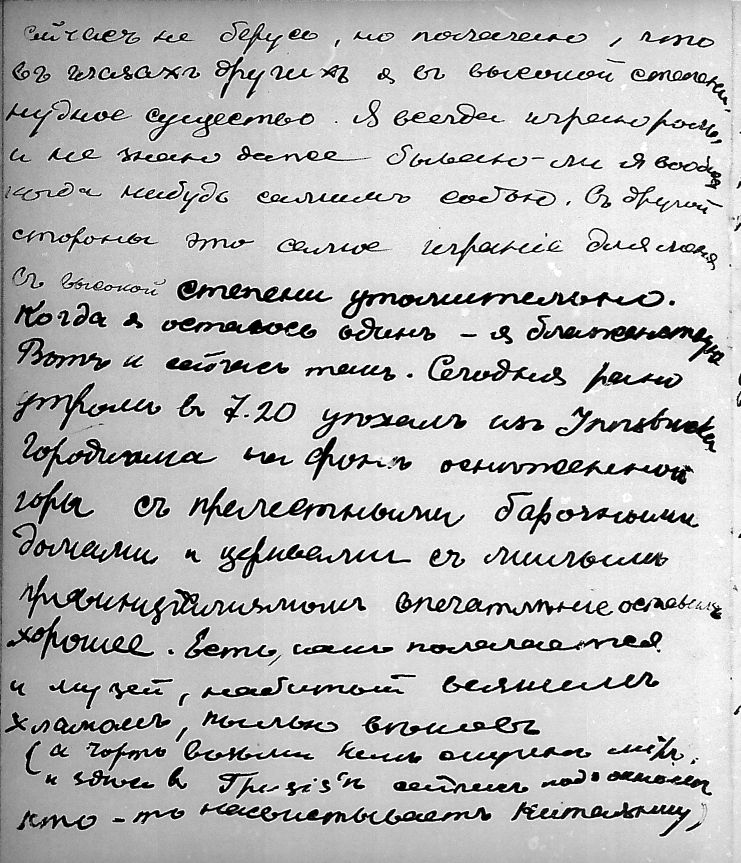 сейчасъ не берусь, но полагаю, что
въ глазахъ другихъ я въ высокой степени
нудное существо. Я всегда играю роль,
и не знаю даже бываю-ли я вообще
когда нибудь самимъ собою. Съ другой
стороны это самое игранiе для меня
въ высокой степени утомительно.
Когда я остаюсь одинъ – я блаженствую
Вотъ и сейчасъ такъ. Сегодня рано
утромъ в 7.20 уѣхалъ изъ Innsbruckа
Городишка на фонѣ оснѣженной
горы съ прелестными барочными
домами и церквами съ милымъ
провинцiализмомъ впечатлѣние оставилъ
хорошее. Есть, какъ полагается
и музей, набитый всякимъ
хламомъ, пылью
(а чортъ возьми какъ мiръ.
и здѣсь в сейчасъ подъ окномъ
кто-то насвистываетъ Китаянку)